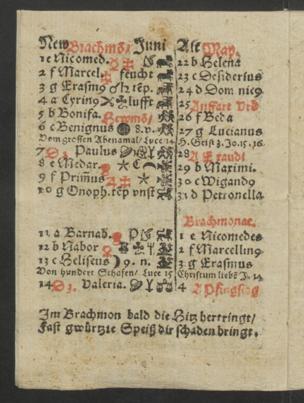 New Brachmo/ Juni Alt May.
1 e Nicomed. 22 b Helena
2 f Marcel. feucht 23 c Desiderius
3 g Erasm9 24 d Dom nic9
4 a Cyrin9 lufft 25 Auffart Vrb
5 b Bonifa. 26 f Beda
6 c Benignus 8.v. 27 g Lucianus
Vom grossen Abenamal/ Luce 14 H. Geist 3. Jo. 15. 16.
7 Paulus 28 A Exaudi
8 e Medar. 29 b Maximi.
9 f Primus 30 c Wigando
10 g Onoph. vnst 31 d Petronella
Brachmonac.
11 a Barnab. 1 e Nicomedes
12 b Nabor 2 f Marcellin9
13 c 9. n. 3 g Erasmus
Von hundert Schafen/ Luce 15 Christum liebt J. 14
14 Valeria. 4 A Pfingstag
Im Brachmon bald die Hitz hertringt/
Fast gwürtzte Speiß dir schaden bringt.